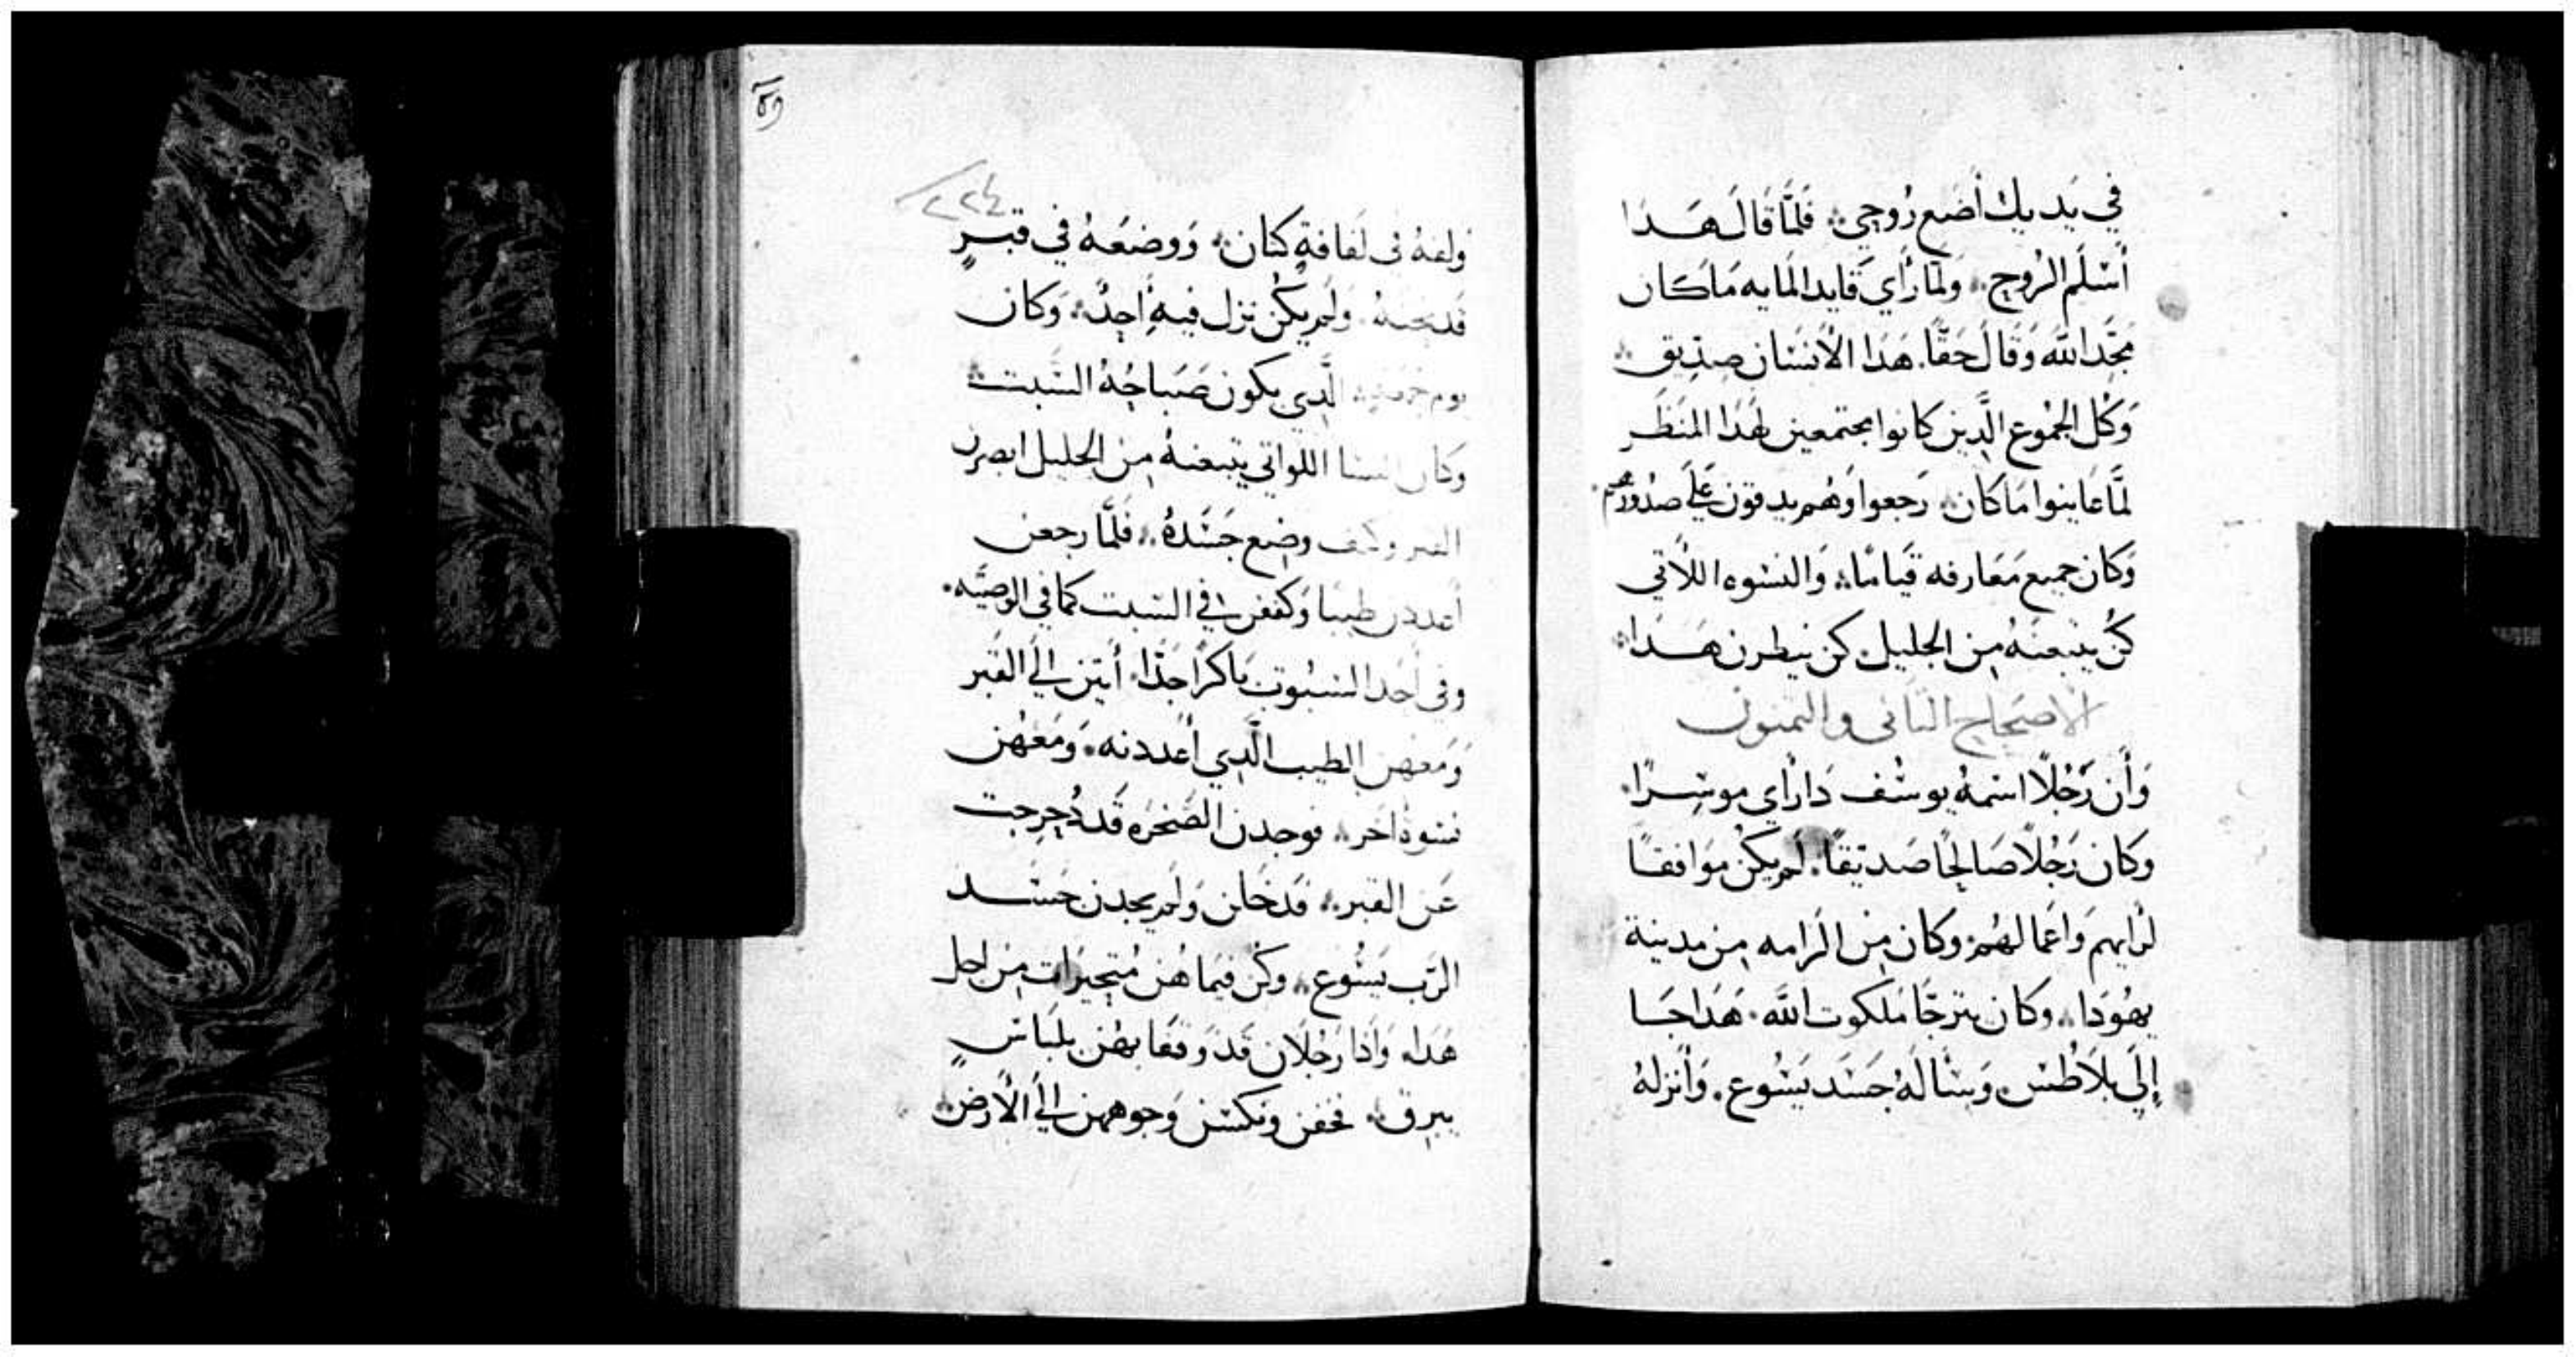 في يديك أضع رُوحي فلمَّا قالَ هَذا
أسْلَم الرُوح ولمَّا رَأي قايد المَايه مَا كان
مَجَّد الله وَقالَ حَقًّا هَذا الأنسَان صِدّيق
وَكُل الجمُوع الَّذين كانوا مجتمعين لهَذا المنظَر
لمَّا عَاينوا مَا كان رَجعوا وَهُم يدقون عَلَي صدُورهم
وَكان جميع مَعَارفه قيامًا وَالنسْوه اللاتي
كُنَّ يتبعنهُ مِن الجليل كن ينظرن هَذا
الاصحاح الثاني والثمنون
وَأن رَجُلًا اسْمهُ يوسُف ذا رَأي موسِرًا
وَكان رَجُلًا صَالحًا صَديقًا لم يكن موَافقًا
لرَايهم وَاعمالهُم وكان مِن الرَامه مِن مدينة
يهُودَا وكان يترجَّا ملكوت الله هَذا جَا
إلَي بلاطُس وَسَالَهُ جَسَد يَسُوع وَأنزلهُ
٢٢٤
ولفهُ في لفافةٍ كتان وَوضعَهُ في قبرٍ
قد نحتهُ وَلم يكُن نزل فيهِ أحِدٌ وَكان
يوم جمعةٍ الَّذي يكون صَبَاحُهُ السَّبت
وكان النسا اللواتي يتبعنهُ مِن الجليل ابصرن
القبر وكيف وضِع جَسَدهُ فلمَّا رجعن
أعددن طيبا وَكففن في السَبت كما في الوصيَّه
وفي أحَد السبُوت بَاكرًا جَدًّا أتين إلَي القبر
وَمعهن الطيب الَّذي أعددنه وَمعَهُن
نسْوةٌ اخَر فوجدن الصَّخرَه قد دُحرِجت
عَن القبر فدخَلن وَلم يجدن جَسَد
الرَب يَسُوع وكن فيمَا هُن مُتحيرَات مِن اجل
هَذا وَاذا رَجُلان قد وَقفا بهُن بلبَاسٍ
يبرق فخفن ونكسْن وَجوههن إلَي الأرض